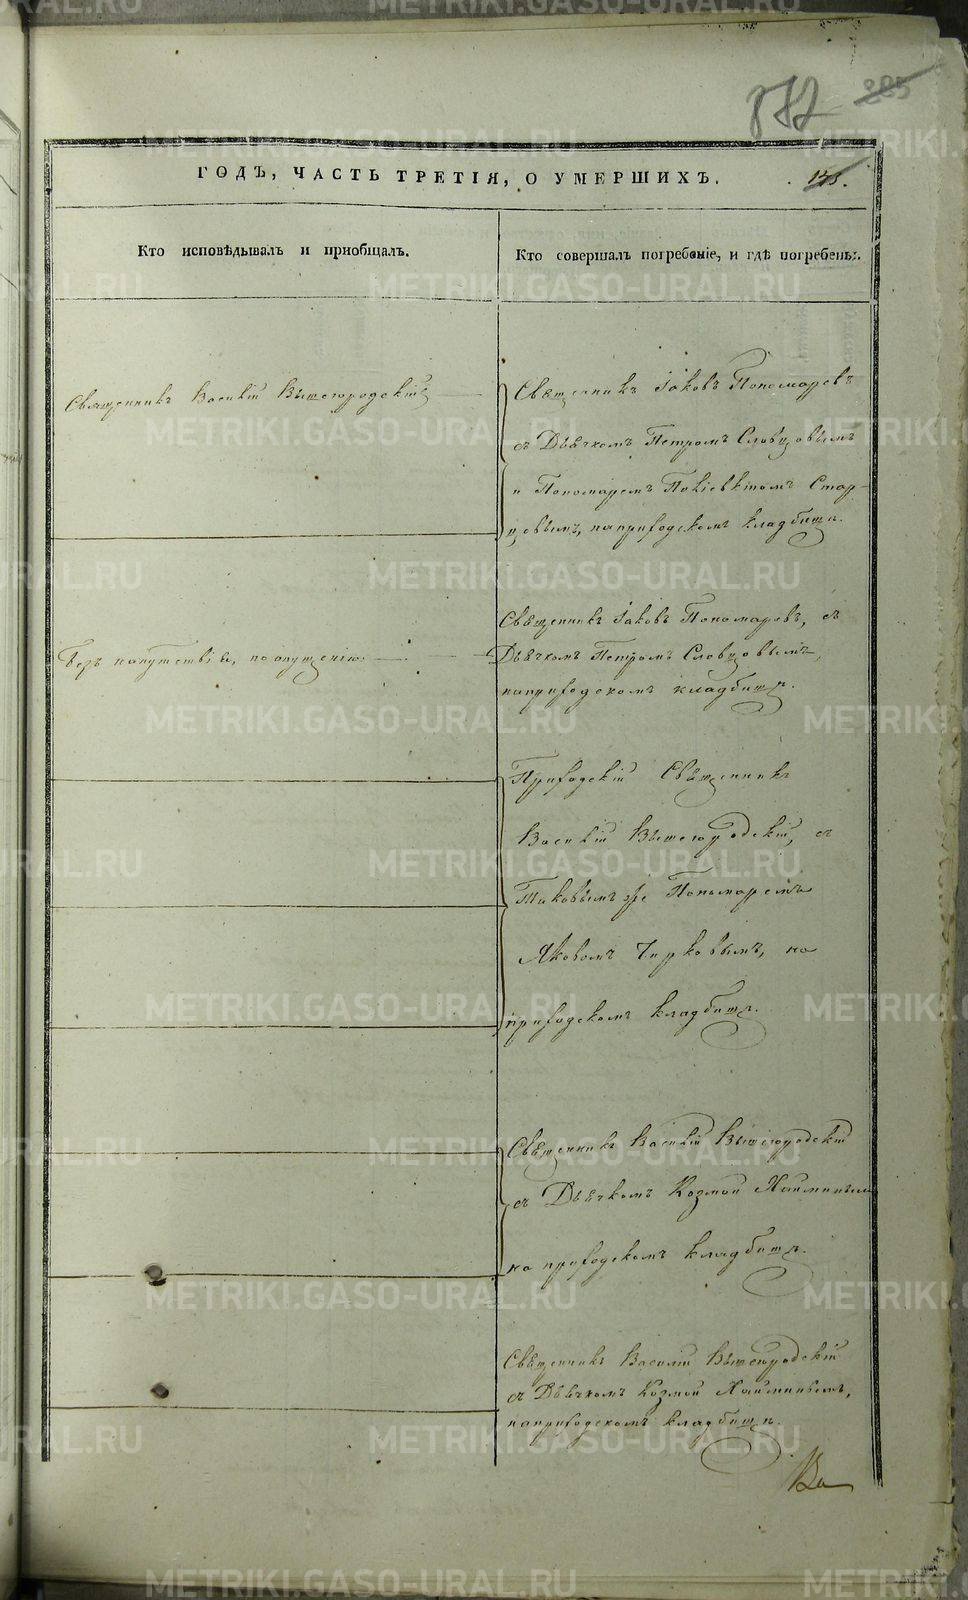 872 225
ГОДЪ, ЧАСТЬ ТРЕТІЯ, О УМЕРШИХЪ.
Кто исповѣдывалъ и пріобщалъ.
Кто совершалъ погребеніе, и гдѣ погребены.
Священникъ Василій Вышегородскій
Священникъ Іаковъ Пономаревъ
съ Дьячкомъ Петромъ Словцовымъ
и Пономаремъ Стар-
цовымъ, на приходскомъ кладбищѣ.
Безъ напутствія, по опущенію.
Священникъ Іаковъ Пономаревъ, съ
Дьячкомъ Петромъ Словцовымъ,
на приходскомъ кладбищѣ.
Приходскій Священникъ
Василій Вышегородскій, съ
Таковымъ же Пономаремъ
Яковомъ Чирковымъ, на
приходскомъ кладбищѣ.
Священникъ Василій Вышегородскій
съ Дьячкомъ Козмой
на приходскомъ кладбищѣ.
Священникъ Василій Вышегородскій
съ Дьячкомъ Козмой
на приходскомъ кладбищѣ.
METRIKI.GASO-URAL.RU